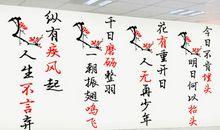 今日不肯埋头
明日何以抬头
花有重开日
人无再少年
千日磨砺整羽
朝振翅鸣飞
纵有疾风起
人生不言弃